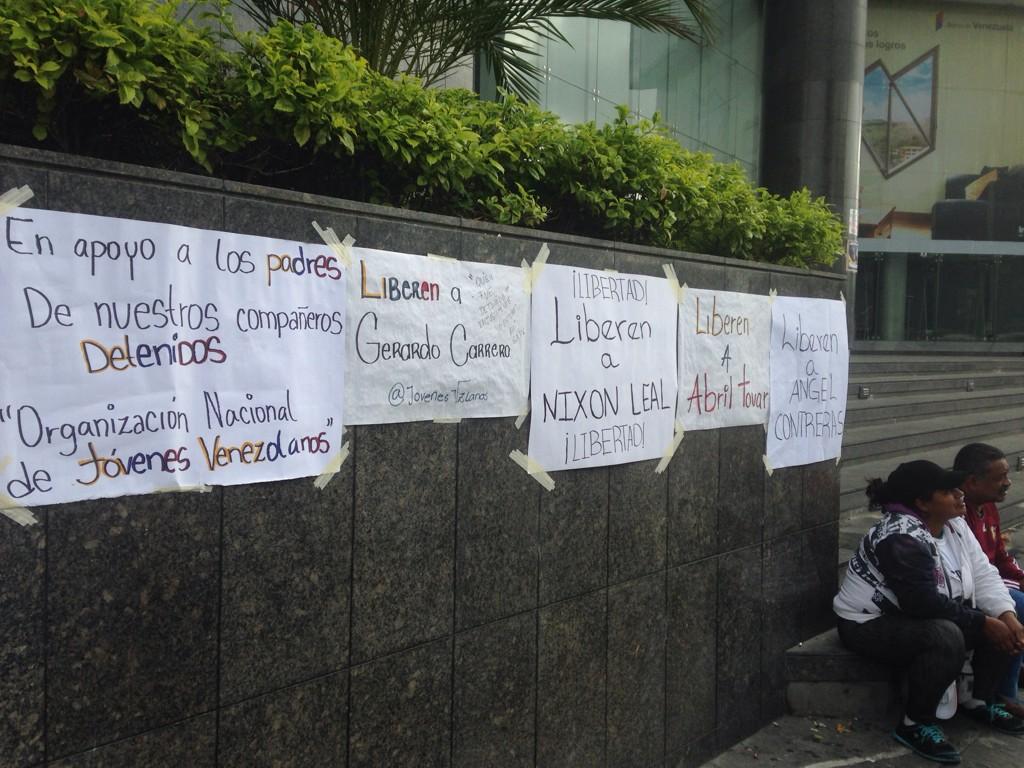 En apoyo a los padres
De nuestros compañeros
Detenidos
"Organización Nacional
de Jóvenes Venezolanos"
Liberen a
Gerardo Carrero
@JovenesVzlanos
¡LIBERTAD!
Liberen
a
NIXON LEAL
¡LIBERTAD!
Liberen
A
Abril tovar
Liberen
a
ANGEL
CONTRERAS
os
s logros
Banco de Venezuela